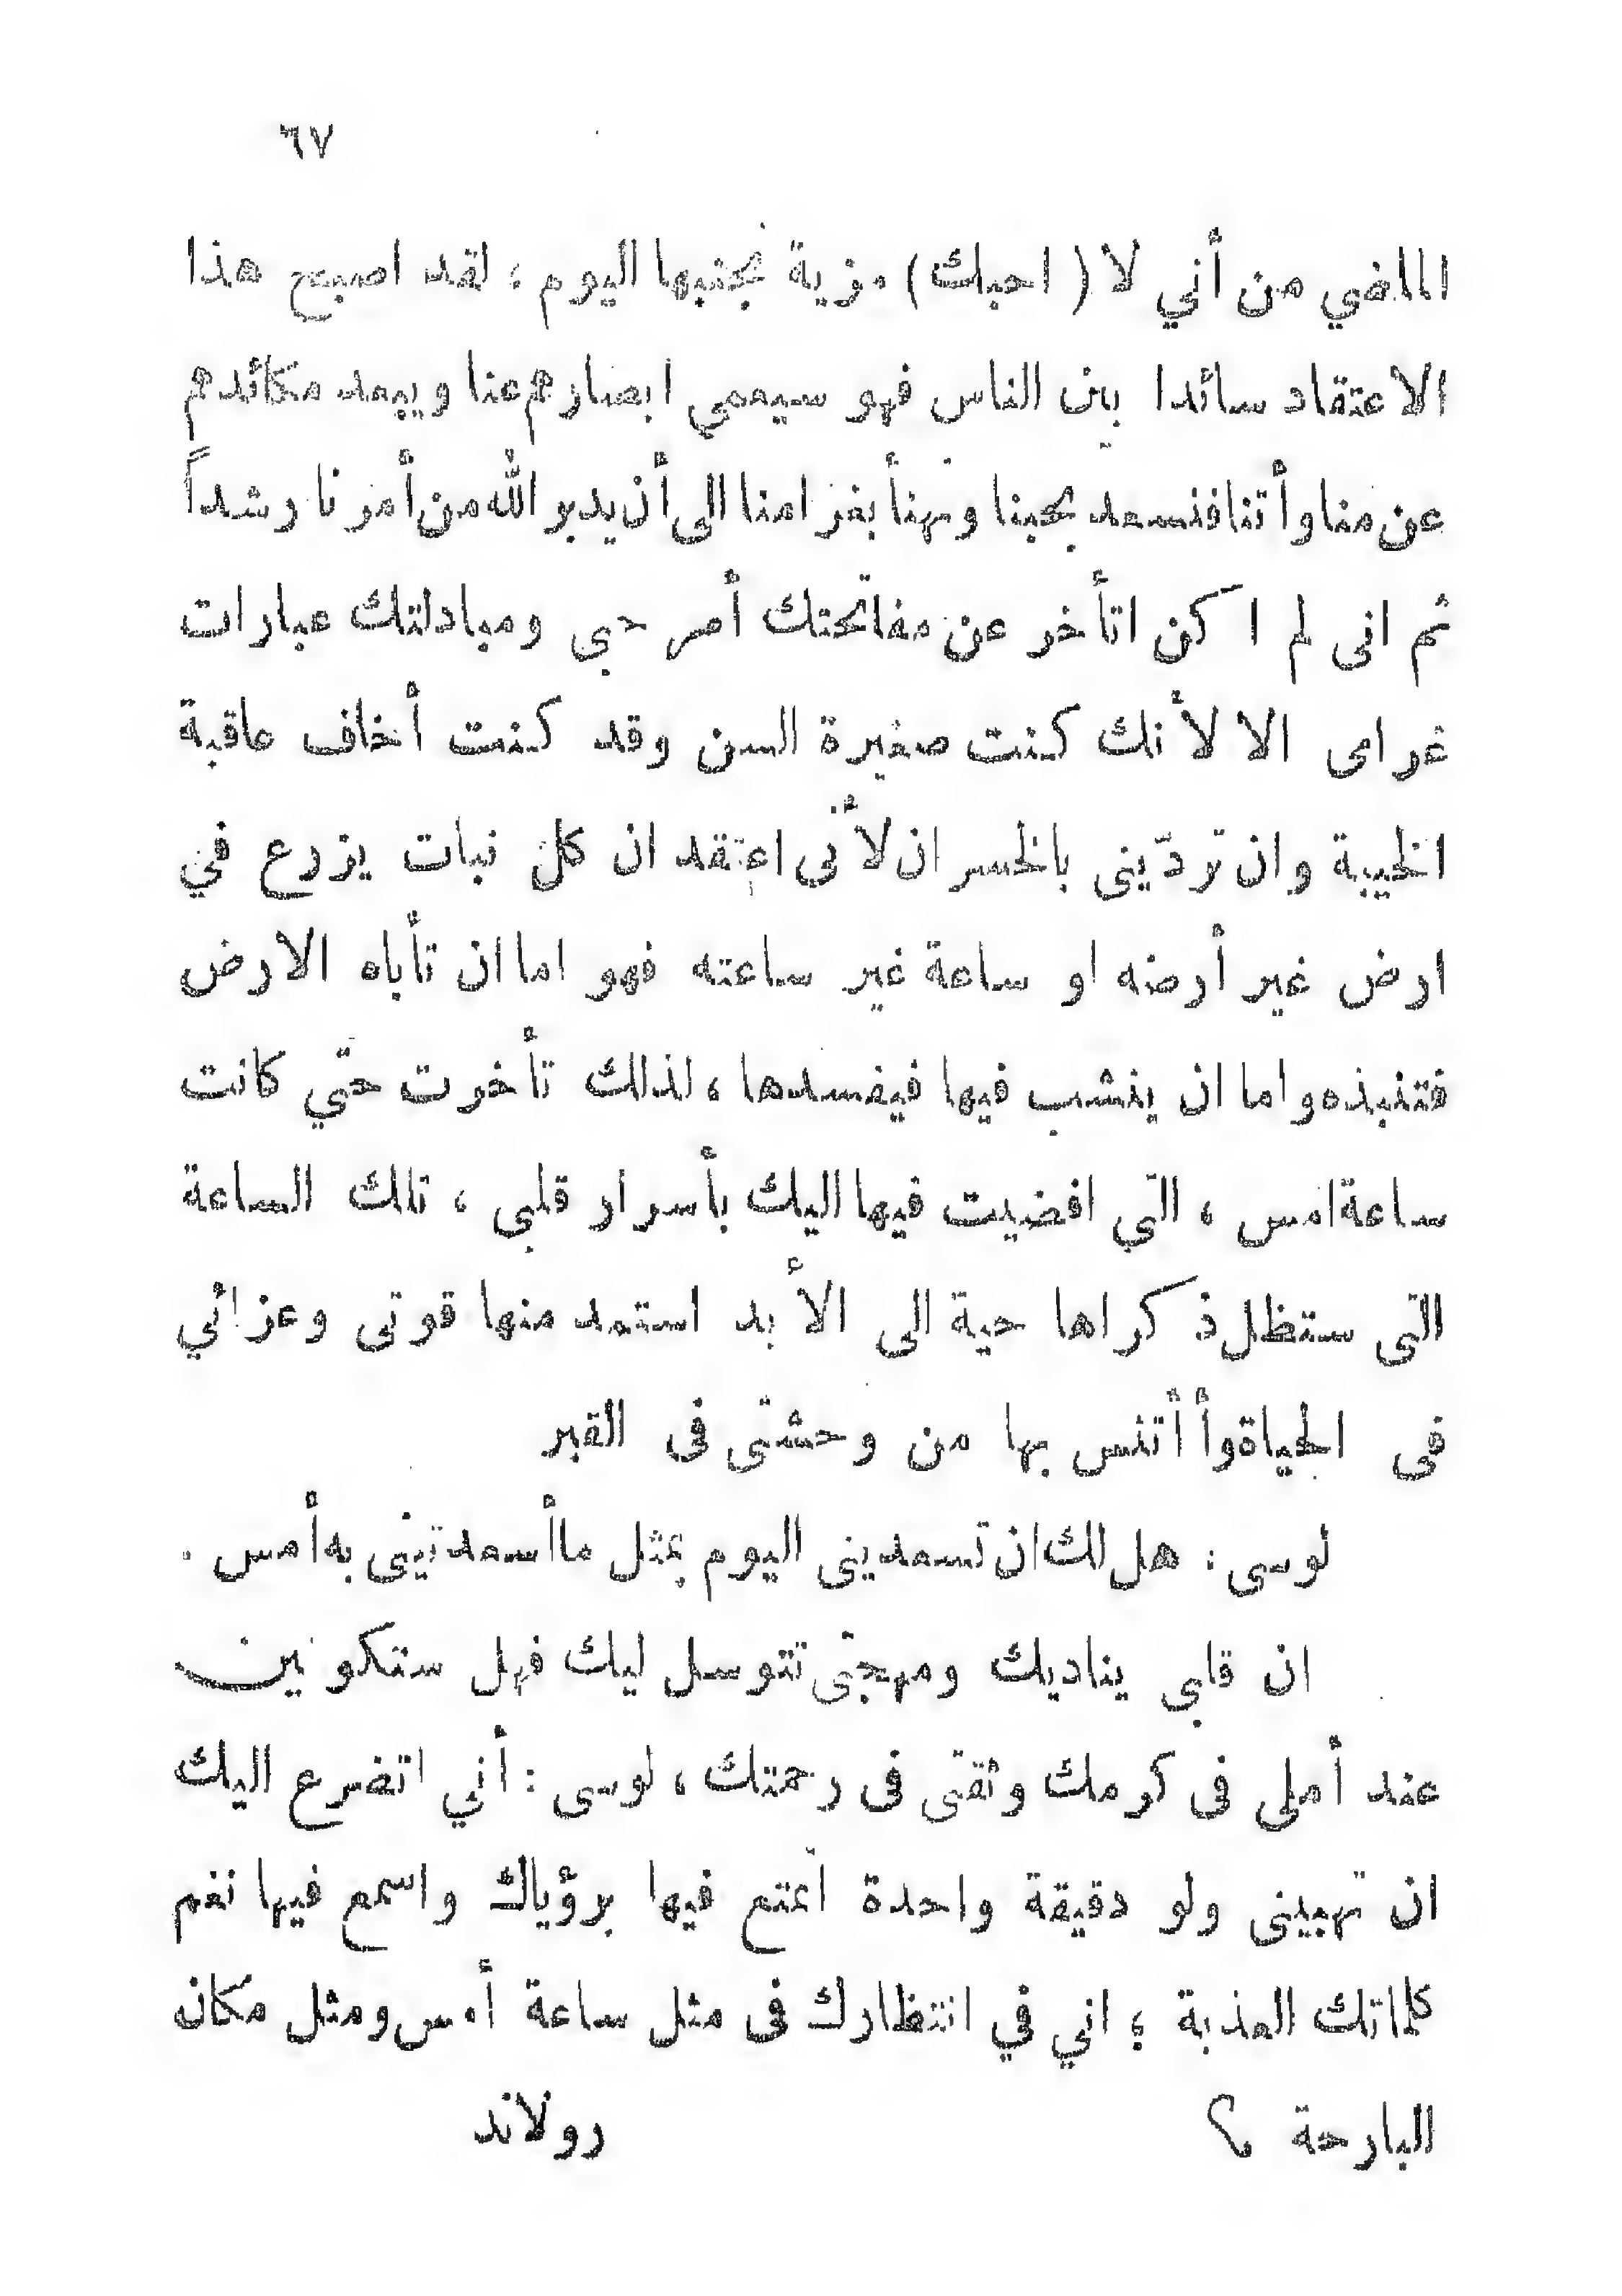 ٦٧
الماضي من أني لا ( احبك ) مزية نجنبها اليوم ، لقد اصبح هذا
الاعتقاد سائدا بين الناس فهو سيعمي ابصارهم عنا ويبعد مكائدهم
عن مناوأتنا فنسعد بحبنا ونهنأ بغرامنا الى أن يدبر الله من أمرنا رشداً
ثم انى لم اكن اتأخر عن مفاتحتك أمر حبى ومبادلتك عبارات
غرامى الا لأنك كنت صغيرة السن وقد كنت أخاف عاقبة
الخيبة وان تردّينى بالخسران لأنى اعتقد ان كل نبات يزرع في
ارض غير أرضه او ساعة غير ساعته فهو اما ان تأباه الارض
فتنبذه واما ان ينشب فيها فيفسدها ، لذلك تأخرت حتّي كانت
ساعة امس ، التي افضيت فيها اليك بأسرار قلبي ، تلك الساعة
التى ستظل ذكراها حية الى الأبد استمد منها قوتى وعزائي
فى الحياة وأأتنس بها من وحشتى فى القبر
لوسى : هل لك ان تسعدينى اليوم بمثل ما أسعدتينى به أمس .
ان قلبي يناديك ومهجتى تتوسل ليك فهل ستكونين
عند أملى فى كرمك وثقتى فى رحمتك ، لوسى : أني اتضرع اليك
ان تهبينى ولو دقيقة واحدة أمتع فيها برؤياك واسمع فيها نغم
كلماتك العذبة ؛ اني في انتظارك فى مثل ساعة أمس ومثل مكان
البارحة ؟ رولاند